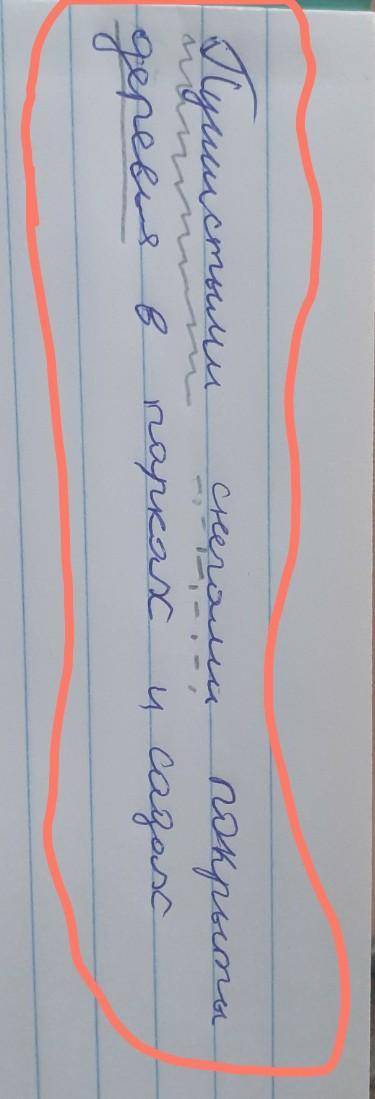 Пушистыми снегами покрыты
деревья в парках и садах